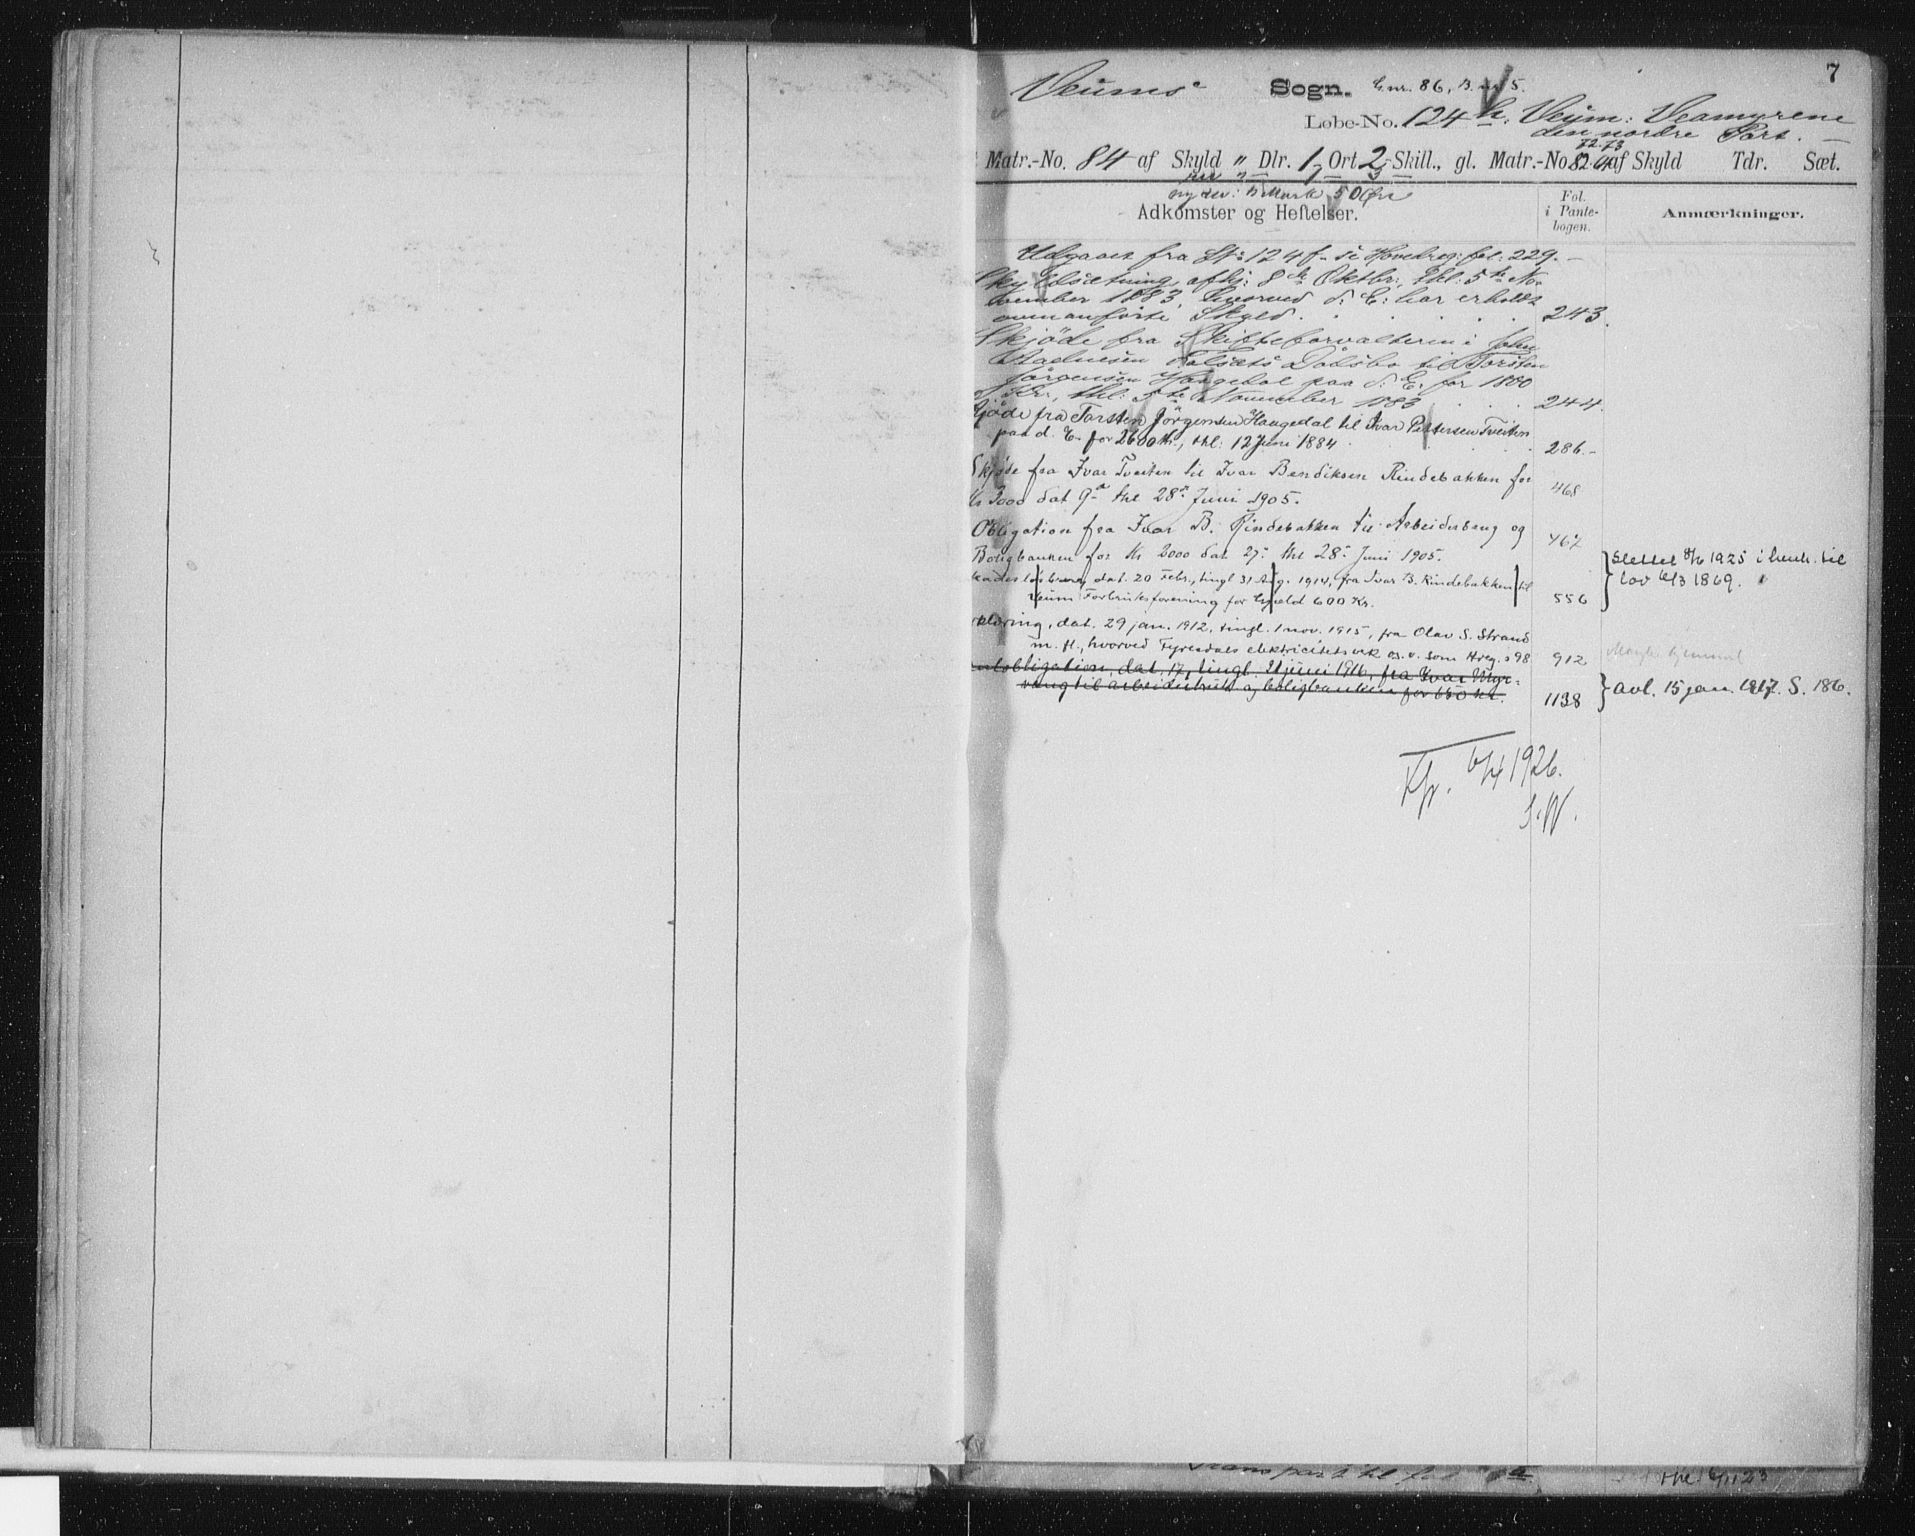 7
Veums Sogn. G.nr. 86, B.nr 5.
Løbe-No. 124 h. Veum: Veamyrene
den nordre Part.
72.73
Matr.-No. 84 af Skyld " Dlr. 1 Ort 2 Skill., gl. Matr.-No. 82.64 af Skyld Tdr. Sæt.
ny rev: Mark 50 Øre
Adkomster og Heftelser.
Fol.
i Pante-
bogen.
Anmærkninger.
Udgaaet fra 124 f. se Hovedreg: fol: 229.
Skyldsætning afhj: 8de Oktbr:, thl: 5te No-
vember 1883, hvorved d: E: har erholdt
ovenanførte Skyld. 243.
Skjöde fra Skifteforvalteren i John
Aadnesen Dalsbo til Torsten
Jörgensen Haugedal paa d. E. for 1800
Kr., thl: 5te November 1883 244.
Skjöde fra Torsten Jörgensen Haugedal til Ivar Pettersen Tveiten
paa d. E. for 2600 Kr., thl: 12 Juni 1884 286.-
Skjöde fra Ivar Tveiten til Ivar Bendiksen Rindebakken for
Kr 3000 dat 9de thl 28de Juni 1905. 468
Obligation fra Ivar B. Rindebakken til Arbeiderbrug og
Boligbanken for Kr 2000 dat 27. thl 28. Juni 1905. 467
Skadesløsbrev, dat. 20 Febr., tingl 31 Aug. 1914, fra Ivar B. Rindebakken til
Veum Forbruksforening for Gjeld 600 Kr. 556
Slettet 8/6 1925 i henh. til
lov 6/3 1869.
Erklæring, dat. 29 jan. 1912, tingl. 1 nov. 1915, fra Olav S. Strand
m. fl., hvorved Fyresdals elektricitetsverk o. s. v. som Hreg. s 98 912
Panteobligation, dat. 17, tingl. 21 juni 1916, fra Ivar Myr-
vang til arbeiderbruk og boligbanken for 650 kr. 1138
Avl. 15 jan. 1917. S. 186.
Kfr. 6/4 1926.
S.W.
Transport til fol